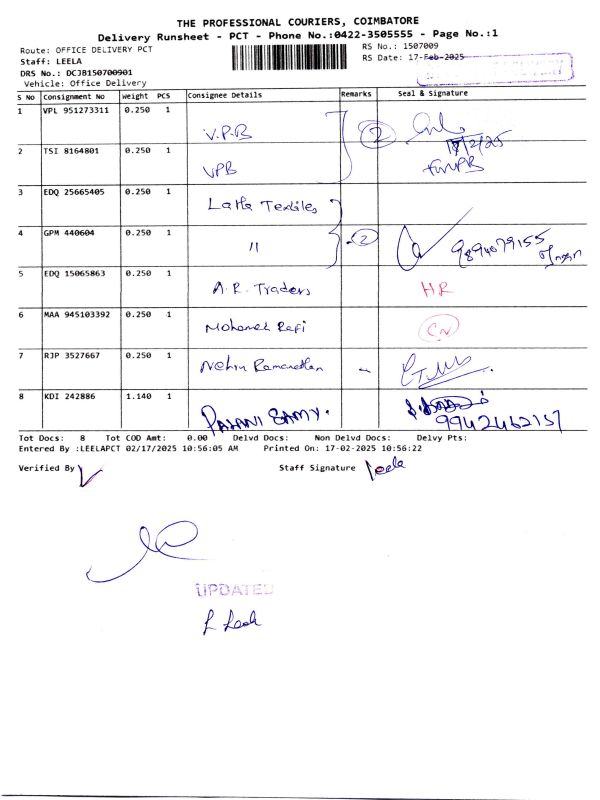 THE PROFESSIONAL COURIERS, COIMBATORE
Delivery Runsheet - PCT - Phone No.:0422-3505555 - Page No.:1
Route: OFFICE DELIVERY PCT
RS No.: 1507009
Staff: LEELA
RS Date: 17-Feb-2025
DRS No.: DCJB150700901
Vehicle: Office Delivery
S No Consignment No Weight PCS Consignee Details Remarks Seal & Signature
1 VPL 951273311 0.250 1 V.P.B 2
17/2/25
2 TSI 8164801 0.250 1 VPB
3 EDQ 25665405 0.250 1 Latha Textiles
4 GPM 440604 0.250 1 11 2 9894079155
5 EDQ 15065863 0.250 1 A.R. Traders HR
6 MAA 945103392 0.250 1 Mohamed Rafi CN
7 RJP 3527667 0.250 1 -
8 KDI 242886 1.140 1 PALANI SAMY. 9942462157
Tot Docs: 8 Tot COD Amt: 0.00 Delvd Docs: Non Delvd Docs: Delvy Pts:
Entered By :LEELAPCT 02/17/2025 10:56:05 AM Printed On: 17-02-2025 10:56:22
Verified By Staff Signature leela
UPDATED